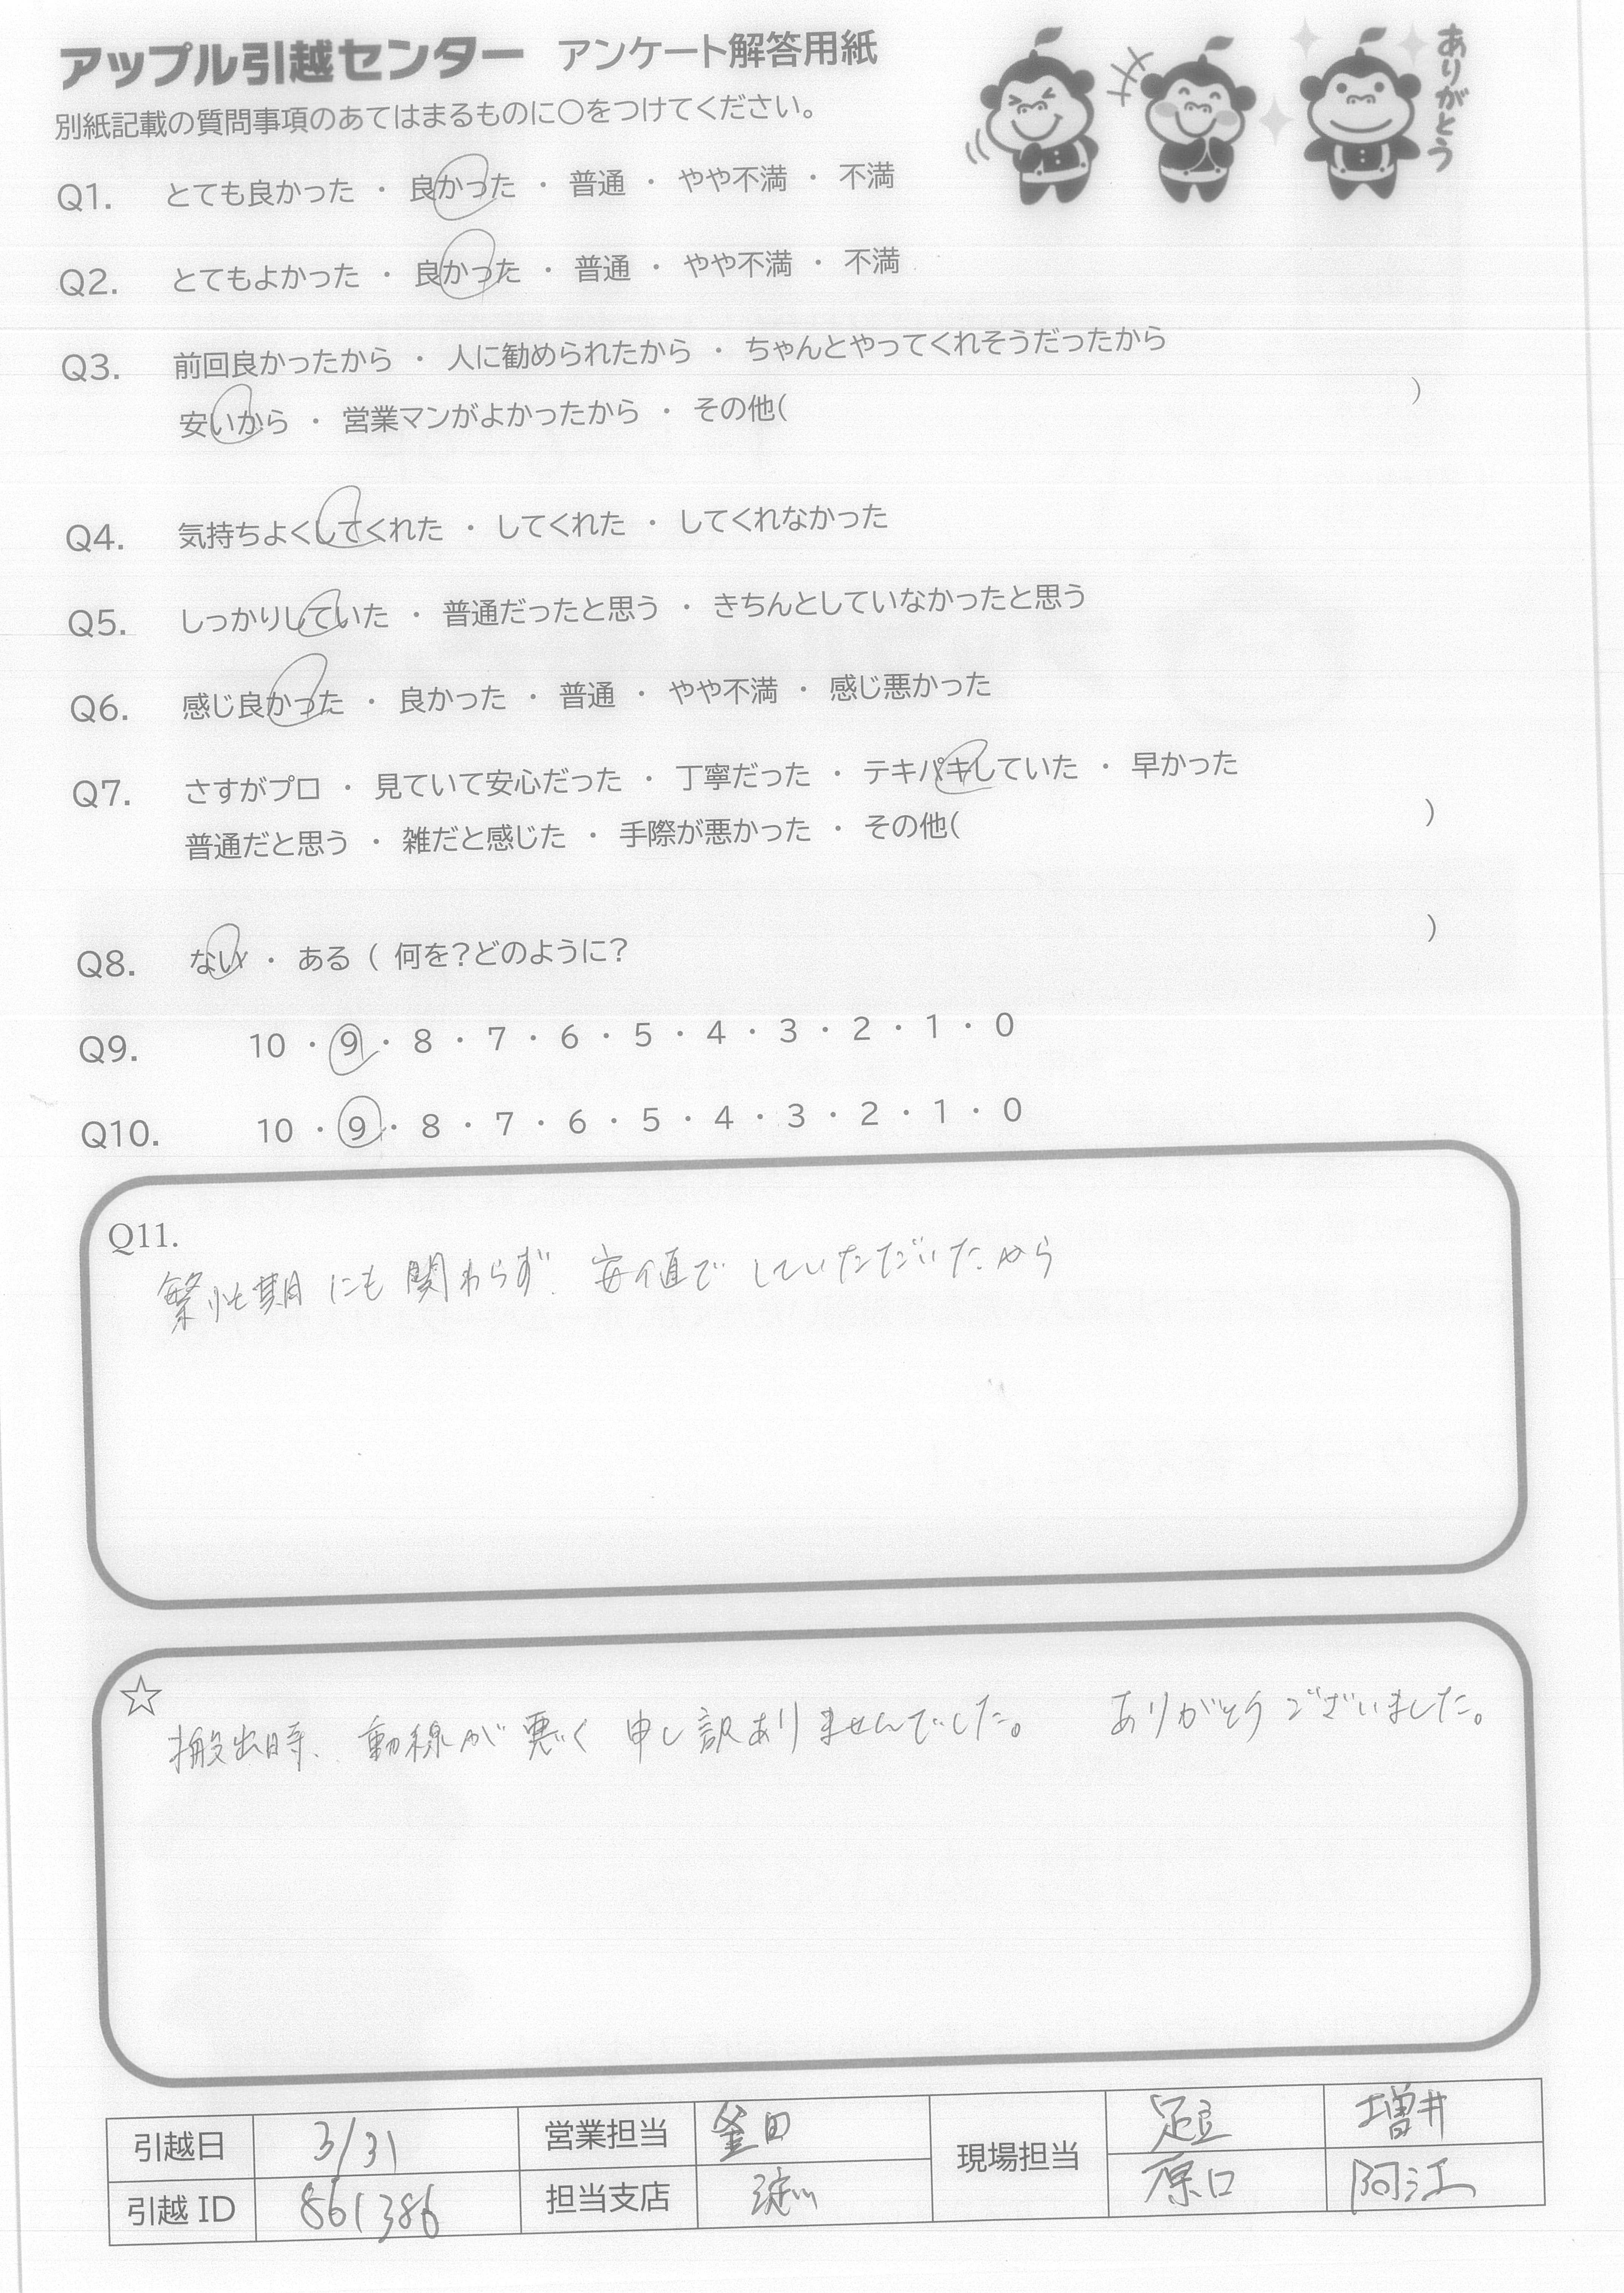 アップル引越センター アンケート解答用紙
ありがとう
別紙記載の質問事項のあてはまるものに〇をつけてください。
Q1. とても良かった ・ 良かった ・ 普通 ・ やや不満 ・ 不満
Q2. とてもよかった ・ 良かった ・ 普通 ・ やや不満 ・ 不満
Q3. 前回良かったから ・ 人に勧められたから ・ ちゃんとやってくれそうだったから
安いから ・ 営業マンがよかったから ・ その他( )
Q4. 気持ちよくしてくれた ・ してくれた ・ してくれなかった
Q5. しっかりしていた ・ 普通だったと思う ・ きちんとしていなかったと思う
Q6. 感じ良かった ・ 良かった ・ 普通 ・ やや不満 ・ 感じ悪かった
Q7. さすがプロ ・ 見ていて安心だった ・ 丁寧だった ・ テキパキしていた ・ 早かった
普通だと思う ・ 雑だと感じた ・ 手際が悪かった ・ その他( )
Q8. ない ・ ある ( 何を?どのように? )
Q9. 10 ・ 9 ・ 8 ・ 7 ・ 6 ・ 5 ・ 4 ・ 3 ・ 2 ・ 1 ・ 0
Q10. 10 ・ 9 ・ 8 ・ 7 ・ 6 ・ 5 ・ 4 ・ 3 ・ 2 ・ 1 ・ 0
Q11.
繁忙期にも関わらず、安値でしていただいたから
☆
搬出時、動線が悪く申し訳ありませんでした。 ありがとうございました。
引越日 3/31 営業担当 釜田 現場担当 足立 増井
引越 ID 861386 担当支店 原口 阿江